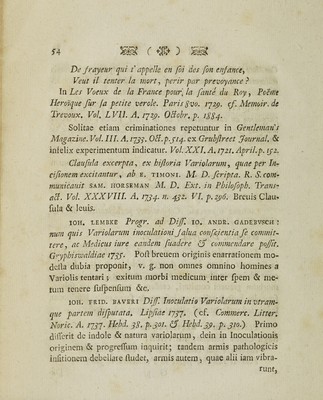 54 ( )
De frayeur qui t'appelle en soi des son enfance,
Veut il tenter la mort, perir par prevoyance?
In Les Voeux de la France pour la santé du Roy, Poëme
Heroique sur sa petite verole. Paris 8vo. 1729. cf. Memoir. de
Trevoux. Vol. LVII. A. 1729. Octobr. p. 1884.
Solitae etiam criminationes repetuntur in Gentleman's
Magazine. Vol. III. A. 1735. Oct. p. 514. ex Grubstreet Journal, &
infelix experimentum indicatur. Vol. XXI. A. 1721. April. p. 152.
Clausula excerpta, ex historia Variolarum, quae per In-
cisionem excitantur, ab E. TIMONI. M. D. scripta. R. S. com-
municavit SAM. HORSEMAN M. D. Ext. in Philosoph. Trans-
act. Vol. XXXVIII. A. 1734. n. 432. VI. p. 296. Brevis Clau-
sula & levis.
IOH. LEMBKE Progr. ad Diss. IO. ANDR. GADEBUSCH:
num quis Variolarum inoculationi salva conscientia se commit-
tere, ac Medicus iure eandem suadere & commendare possit.
Gryphiswaldiae 1735. Post brevem originis enarrationem mo-
desta dubia proponit, v. g. non omnes omnino homines a
Variolis tentari; exitum morbi medicum inter spem & me-
tum tenere suspensum &c.
IOH. FRID. BAVERI Diss. Inoculatio Variolarum in vtram-
que partem disputata, Lipsiae 1737. (cf. Commerc. Litter.
Noric. A. 1737. Hebd. 38. p. 301. & Hebd. 39. p. 310.) Primo
disserit de indole & natura variolarum, dein in Inoculationis
originem & progressum inquirit; tandem armis pathologicis
insitionem debellare studet, armis autem, quae alii iam vibra-
runt,